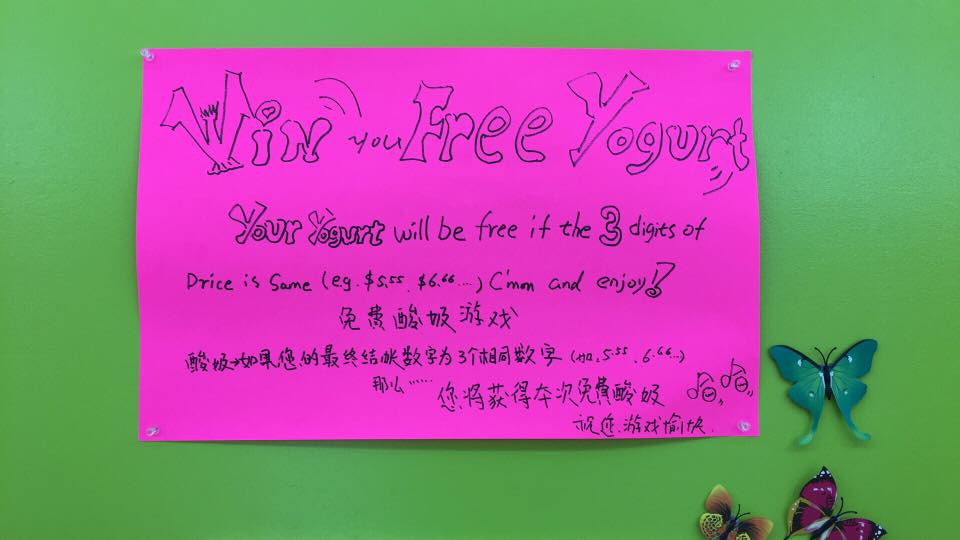 Win you Free Yogurt
Your Yogurt will be free if the 3 digits of
Price is Same (e.g. $5.55, $6.66...) C'mon and enjoy!
免费酸奶游戏
酸奶→如果您的最终结帐数字为3个相同数字 (如:5.55, 6.66...)
那么…… 您将获得本次免费酸奶 哈哈
祝您游戏愉快.